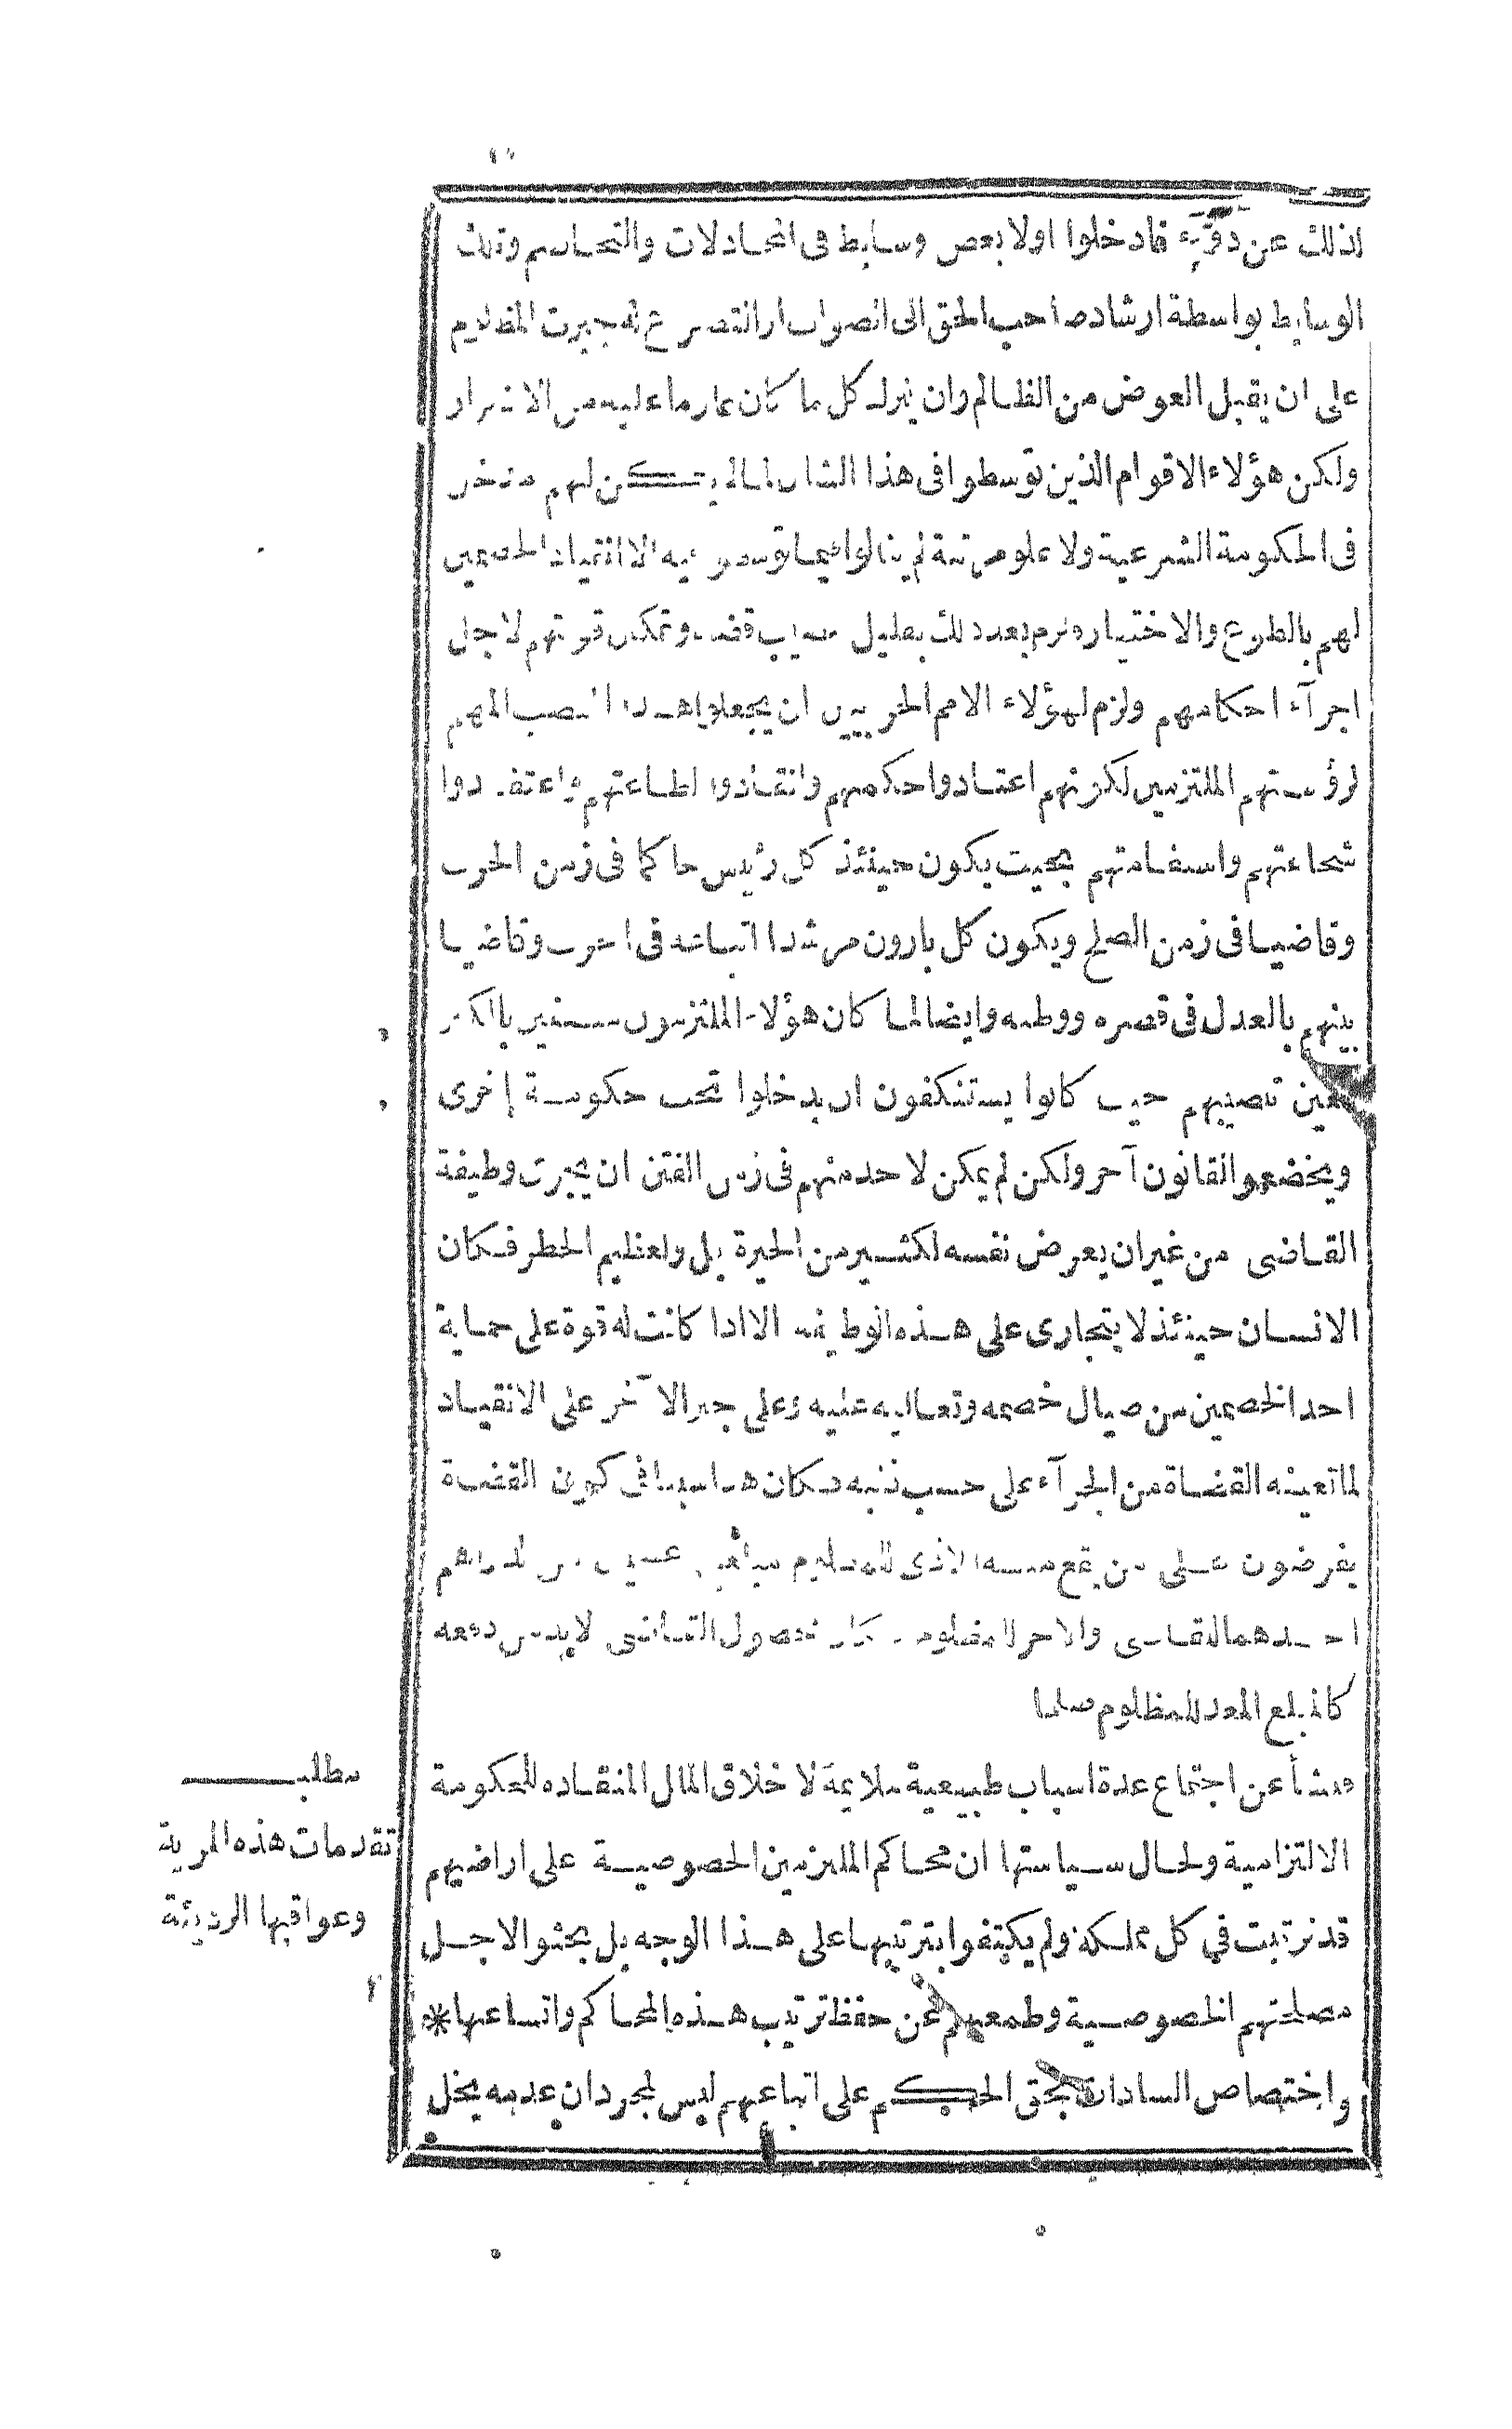 لذلك عن دقة فادخلوا اولا بعض وسايط فى المجادلات والتحاسم وتلك
الوسايط بواسطة ارشاد صاحب الحق الى الصواب او التضرع له جبرت المظلوم
على ان يقبل العوض من الظالم وان يترك كل ما كان عارما عليه من الاضرار
ولكن هؤلاء الاقوام الذين توسطوا فى هذا الشان لما لم يكن لهم مدخل
فى الحكومة الشرعية ولا علو مرتبة لم ينالوا فيما توسطوا فيه الا انقياد الخصمين
لهم بالطوع والاختيار ولزم بعد ذلك بقليل وتمكن قوتهم لاجل
اجرآء احكامهم ولزم لهؤلاء الامم الحربيين ان يجعلوا هذا المنصب المهم
لرؤسائهم الملتزمين لكونهم اعتادوا حكمهم وانقادوا لطاعتهم واعتقدوا
شجاعتهم واستقامتهم بحيث يكون حينئذ كل رئيس حاكما فى زمن الحرب
وقاضيا فى زمن الصلح ويكون كل بارون مرشدا اتباعه فى الحرب وقاضيا
بينهم بالعدل فى قصره ووطنه وايضا لما كان هؤلاء الملتزمون بالكبر
تعصبهم حيث كانوا يستنكفون ان يدخلوا تحت حكومة اخرى
ويخضعوا لقانون آخر ولكن لم يمكن لاحد منهم فى زمن الفتن ان يجرى وظيفة
القاضى من غير ان يعرض نفسه لكثير من الحيرة بل ولعظيم الخطر فكان
الانسان حينئذ لا يتجارى على هذه الوظيفة الا اذا كانت له قوة على حماية
احد الخصمين من صيال خصمه وتعاليه عليه وعلى جبر الآخر على الانقياد
لما تعينه القضاة من الجزآء على حسب ذنبه فكان هذا سببا فى كون القضاة
يفرضون على من يقع منه الاذى للمظلوم من الدراهم
احدهما للقاضى والاخر للمظلوم فكان محصول القاضى لا بد من دفعه
كالمبلغ المعد للمظلوم
فنشأ عن اجتماع عدة اسباب طبيعية ملايمة لاخلاق الملل المنقاده للحكومة
الالتزامية ولحال سياستها ان محاكم الملتزمين الخصوصية على اراضيهم
قد ترتبت فى كل مملكة ولم يكتفوا بترتيبها على هذا الوجه بل بحثوا لاجل
مصلحتهم الخصوصية وطمعهم عن حفظ ترتيب هذه المحاكم واتساعها*
واختصاص السادات بحق الحكم على اتباعهم ليس لمجرد ان عدمه يخل
مطلب
تقدمات هذه المزية
وعواقبها الرديئة